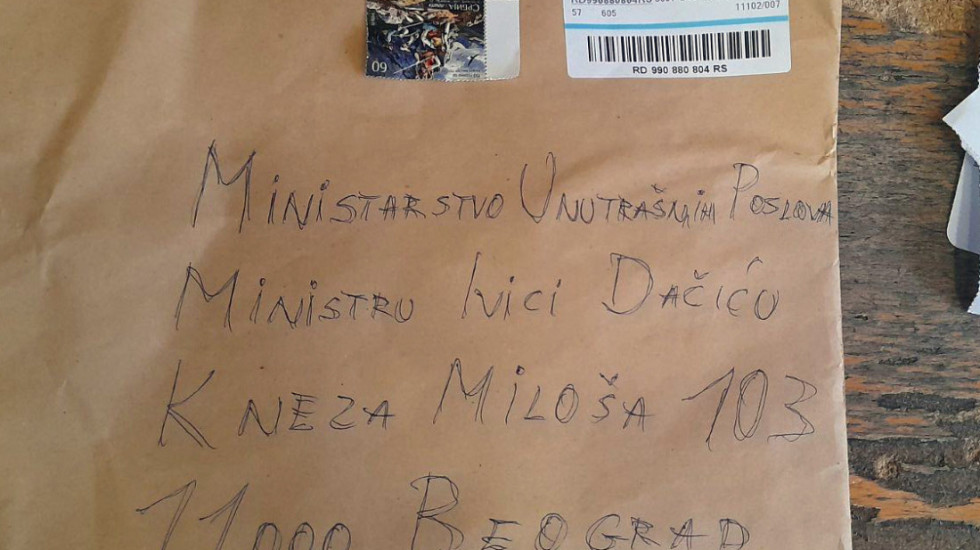 СРБИЈА
60
57 605
11102/007
RD 990 880 804 RS
MINISTARSTVO UNUTRAŠNJIH POSLOVA
MINISTRU IVICI DAČIĆU
KNEZA MILOŠA 103
11000 BEOGRAD